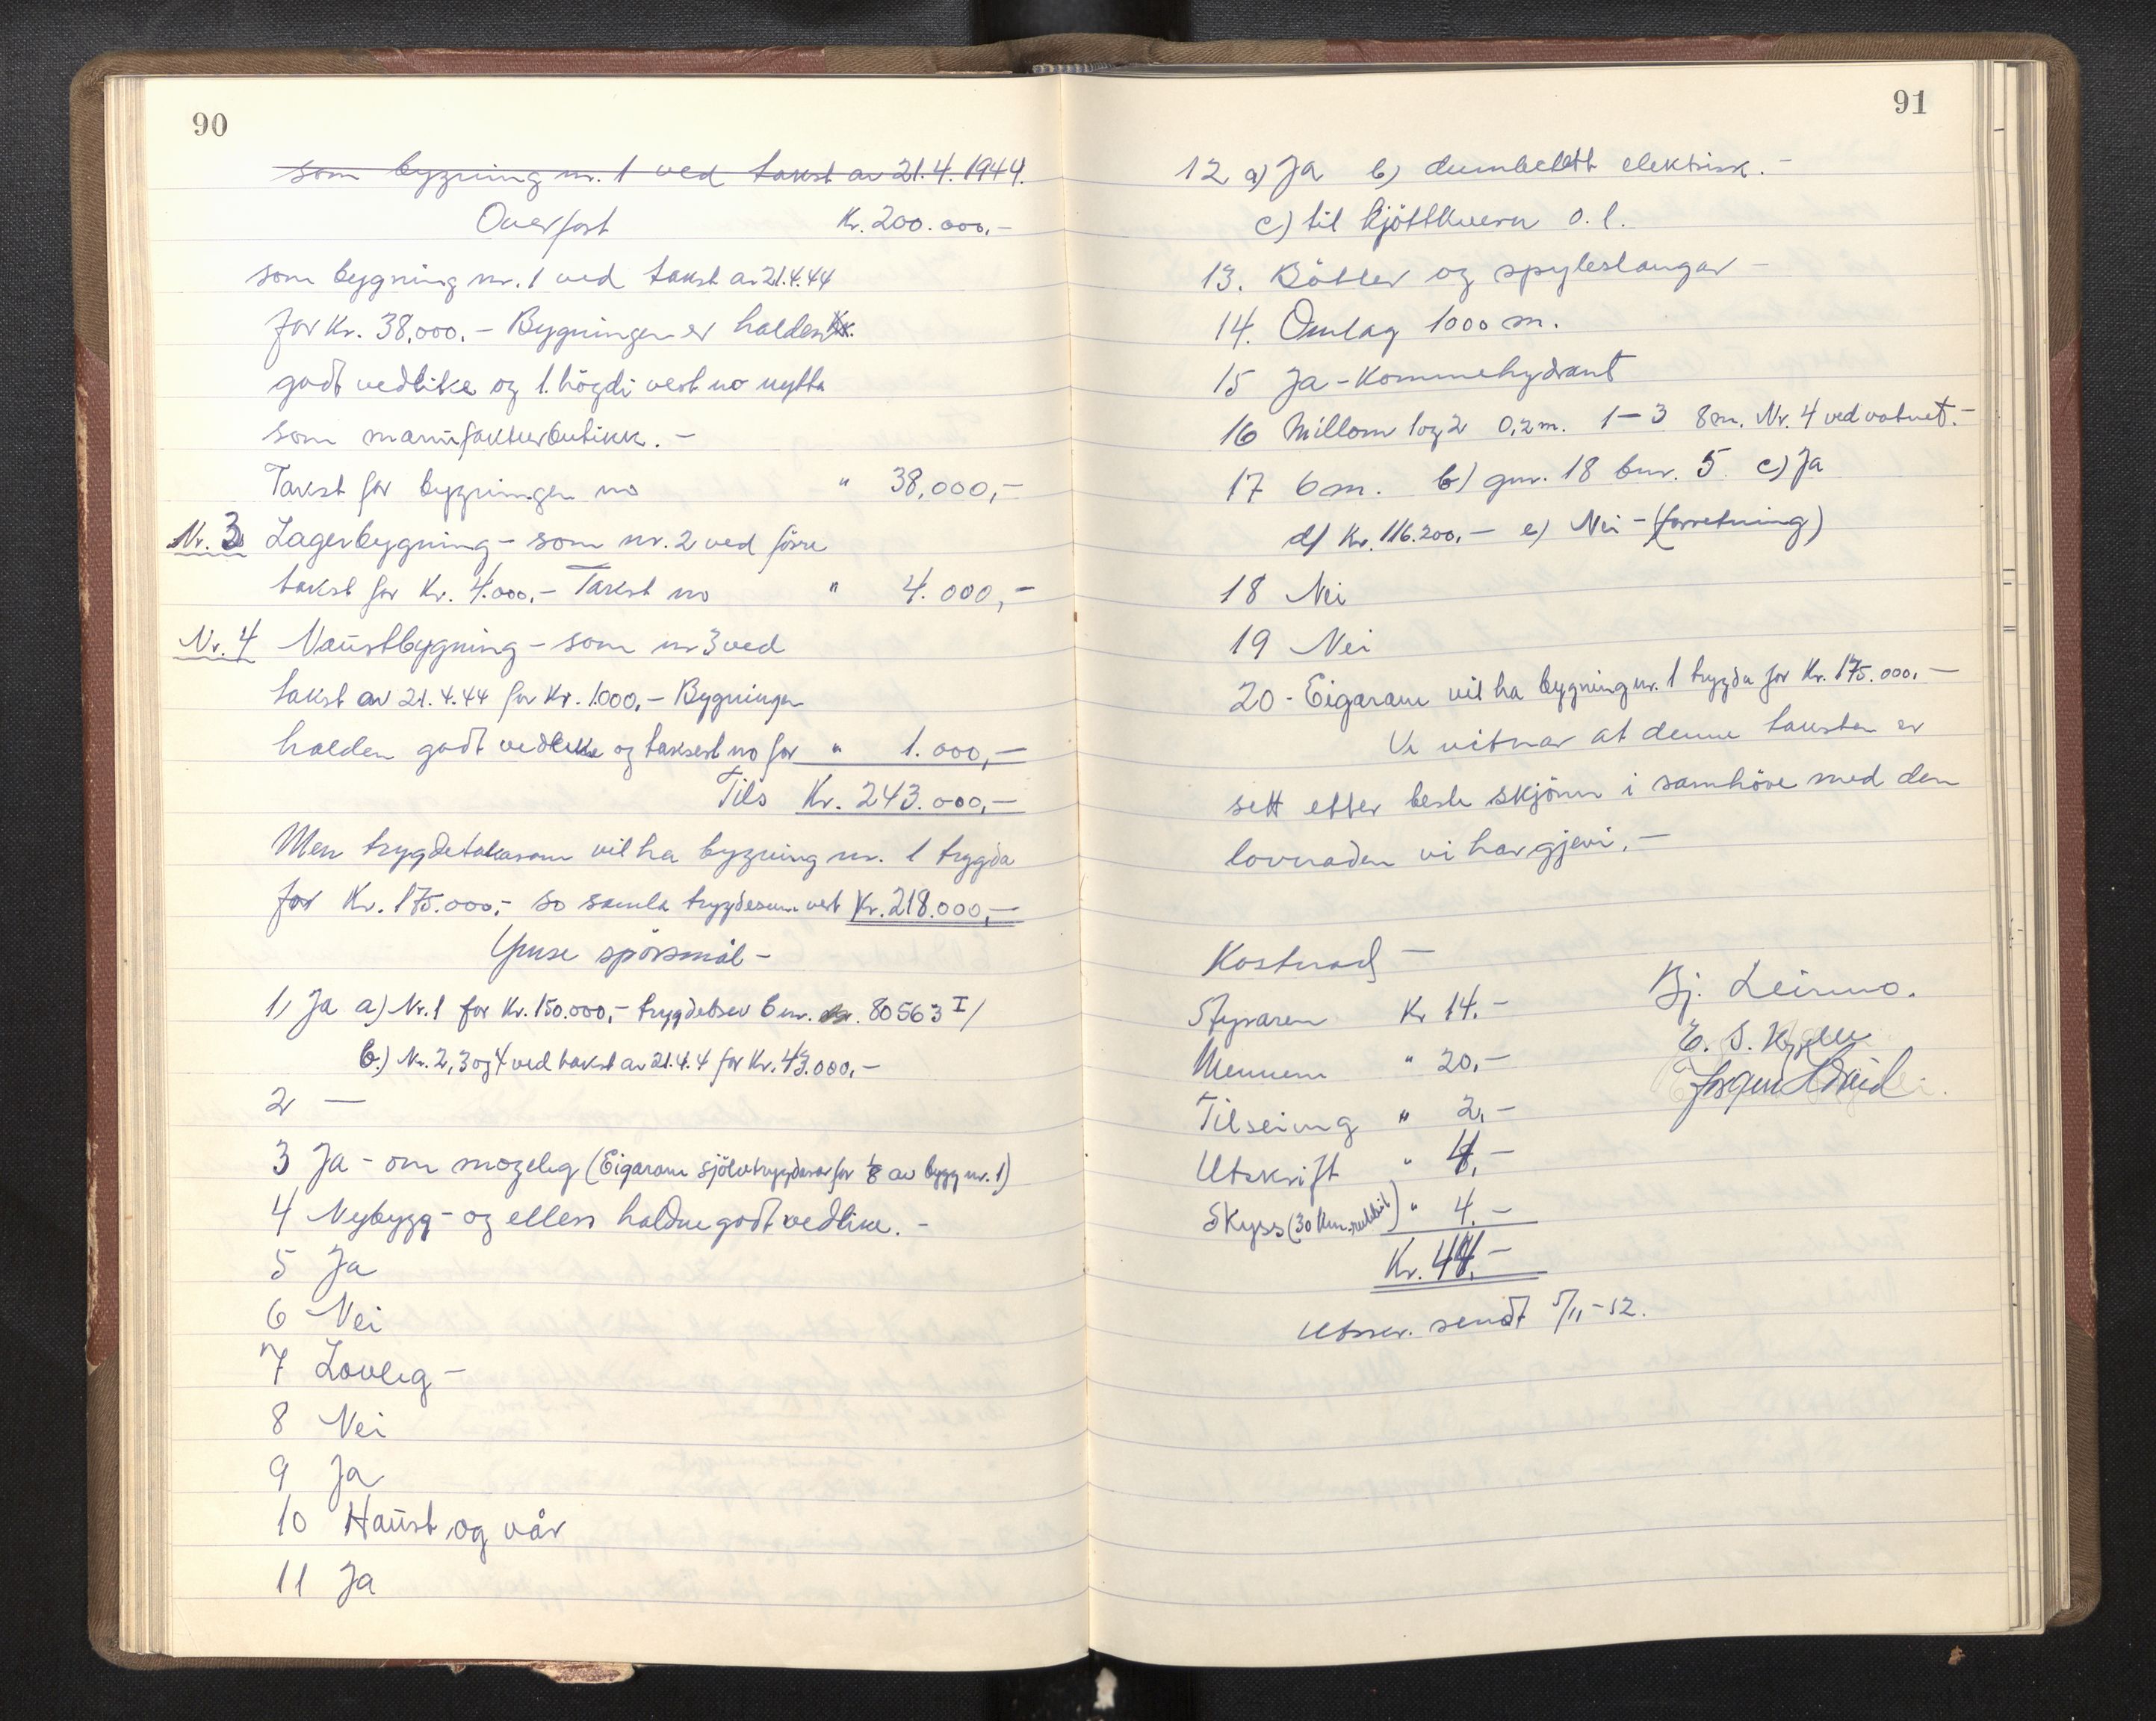 90
som bygning nr. 1 ved takst av 21.4.1944.
Overført Kr. 200.000,-
som bygning nr. 1 ved takst av 21.4.44
for Kr. 38,000.- Bygningen er halden
godt vedlike og 1. högdi vert no nytta
som manufakturbutikk. -
Takst for bygningen no " 38,000,-
Nr. 3 Lagerbygning - som nr. 2 ved förre
takst for Kr. 4.000,- Takst no " 4.000,-
Nr. 4 Naustbygning - som nr 3 ved
takst av 21.4.44 for Kr. 1.000,- Bygningen
halden godt vedlike og taksert no for " 1.000,-
Tils Kr. 243.000,-
Men trygdetakaram vil ha bygning nr. 1 trygda
for Kr. 175.000,- so samla trygdesum vert Kr. 218.000,-
Ymse spörsmål -
1, Ja a) Nr. 1 for Kr. 150.000,- trygdebrev 6 nr. 80563 I/
b.) Nr. 2, 3 og 4 ved takst av 21.4.4 for Kr. 43.000,-
2 —
3 Ja - om mogeleg (Eigarane sjölvtrygdarar for 1/8 av bygg nr. 1)
4 Nybygg - og ellers haldne godt vedlike. -
5 Ja
6 Nei
7 Lovleg -
8 Nei
9 Ja
10 Haust og vår
11 Ja
91
12 a) Ja b) elektrisk. -
c) til kjöttkvern o. l.
13. Bötter og spyleslangar -
14. Omlag 1000 m.
15 Ja - Kommehydrant
16 Millom 1 og 2 0,2 m. 1-3 8 m. Nr. 4 ved vatnet. -
17 6 m. b) gnr. 18 bnr. 5 c) Ja
d) Kr. 116.200,- e) Nei - (forretning)
18 Nei
19 Nei
20 - Eigarane vil ha bygning nr. 1 trygda for Kr. 175.000,-
Vi vitnar at denne taksten er
sett etter beste skjönn i samhöve med den
lovnaden vi har gjevi. -
Kostnad -
Styraren Kr 14.-
Mennene " 20,-
Tilseing " 2,-
Utskrift " 4,-
Skyss (30 km. rutebil) " 4.-
Kr. 44.-
Bj. Leirmo.
E. S. Kjelle
Utskr. sendt 5/11-52.